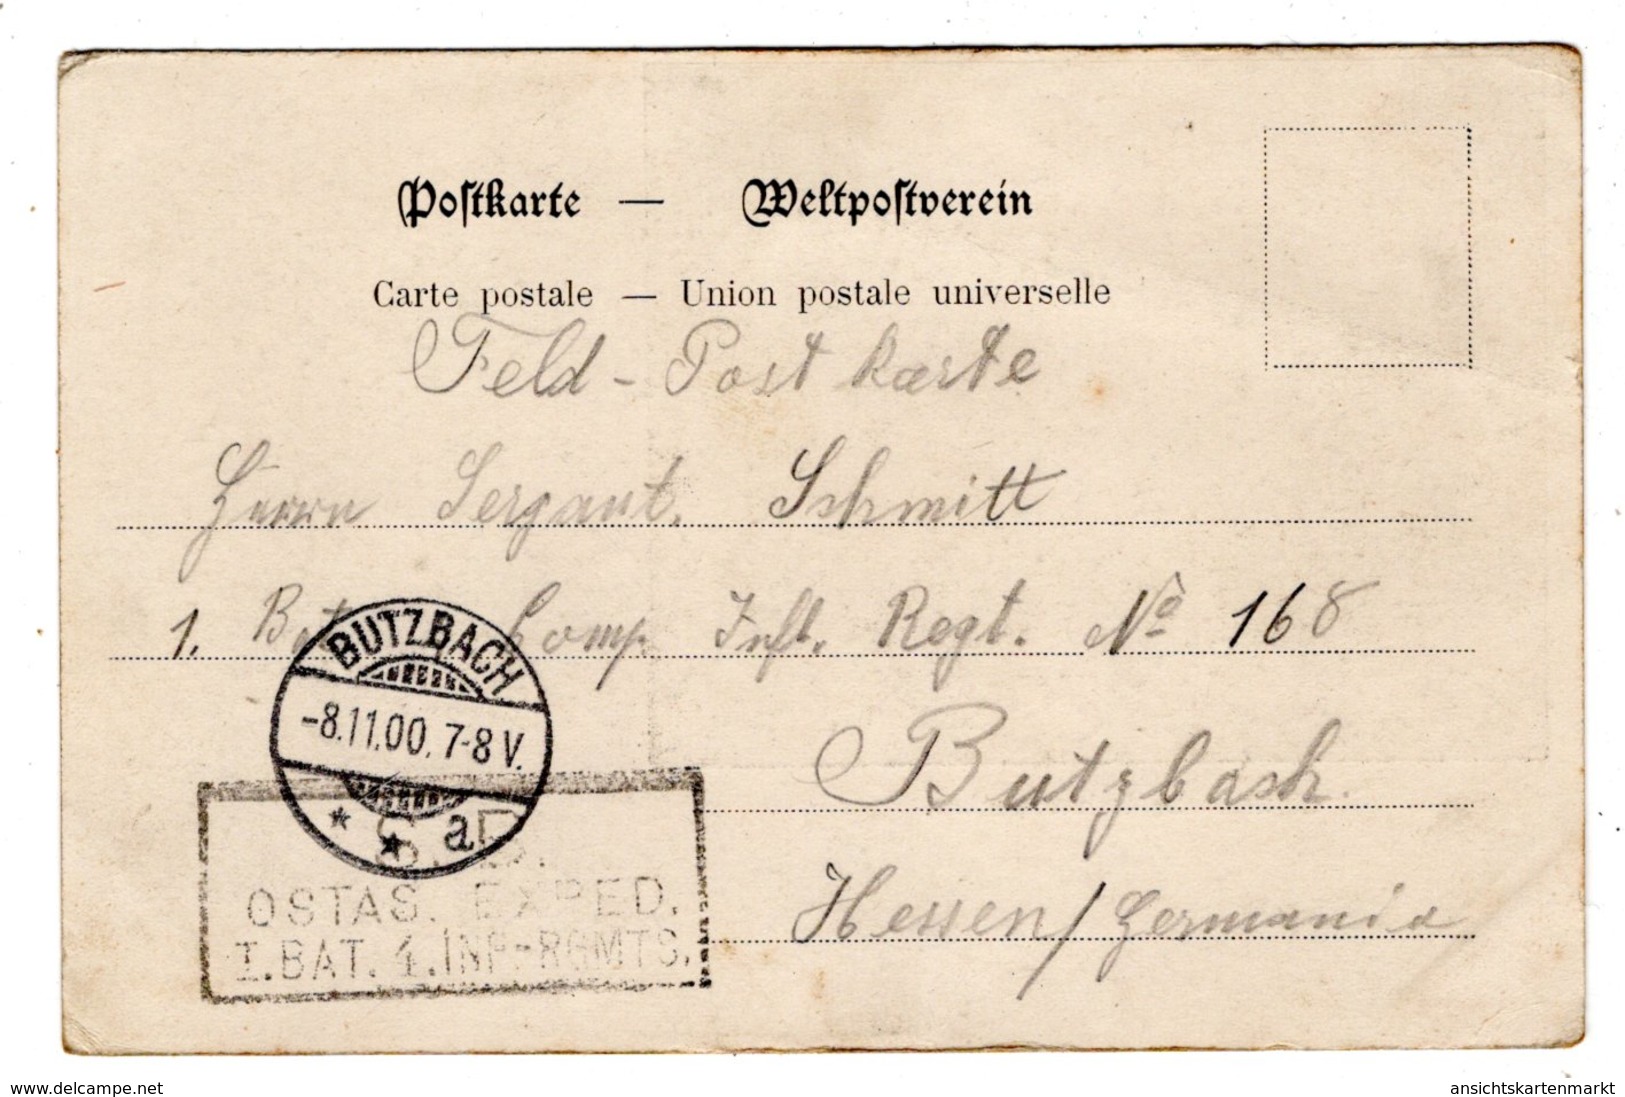 Postkarte — Weltpostverein
Carte postale — Union postale universelle
Feld-Postkarte
Herrn Sergant. Schmitt
1. Comp. Inft. Regt. No 168
BUTZBACH
-8.11.00. 7-8 V.
* * a
Butzbach.
S. B.
OSTAS. EXPED.
I. BAT. 4. INF-RGMTS.
Hessen / Germania
www.delcampe.net
ansichtskartenmarkt